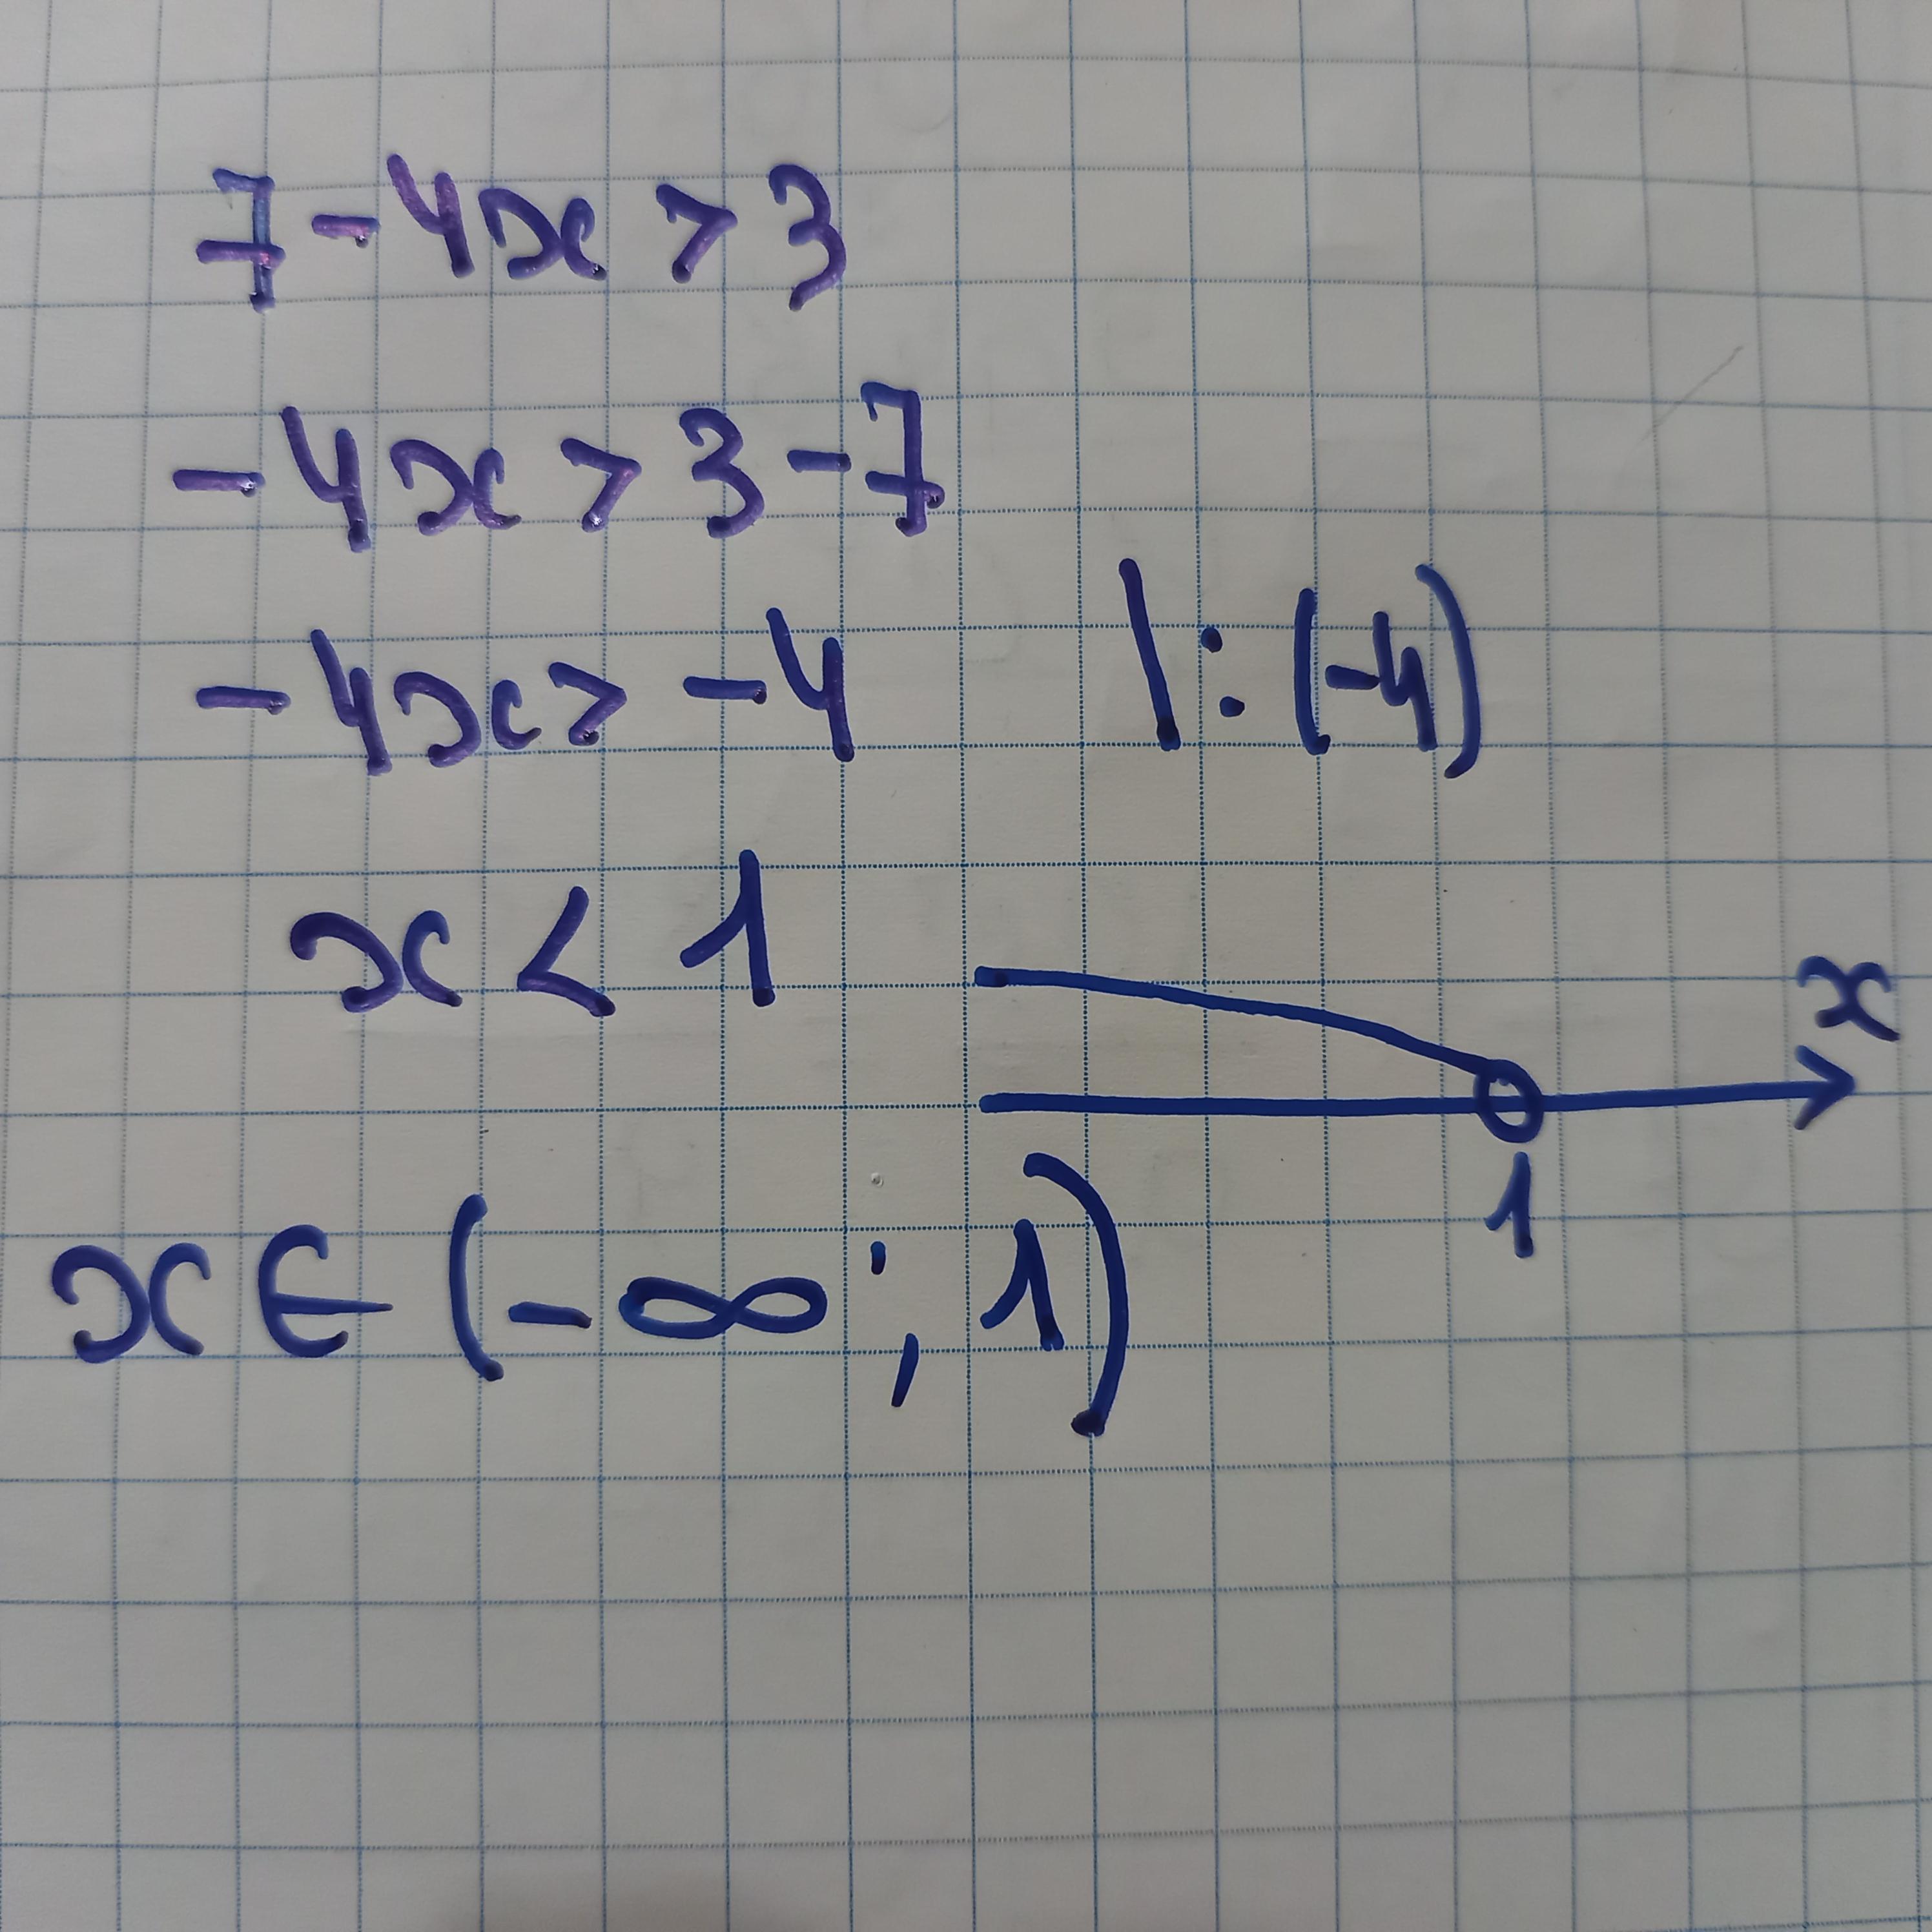 7-4x>3
-4x>3-7
-4x>-4 |:(-4)
x<1
x
1
x∈(-∞;1)